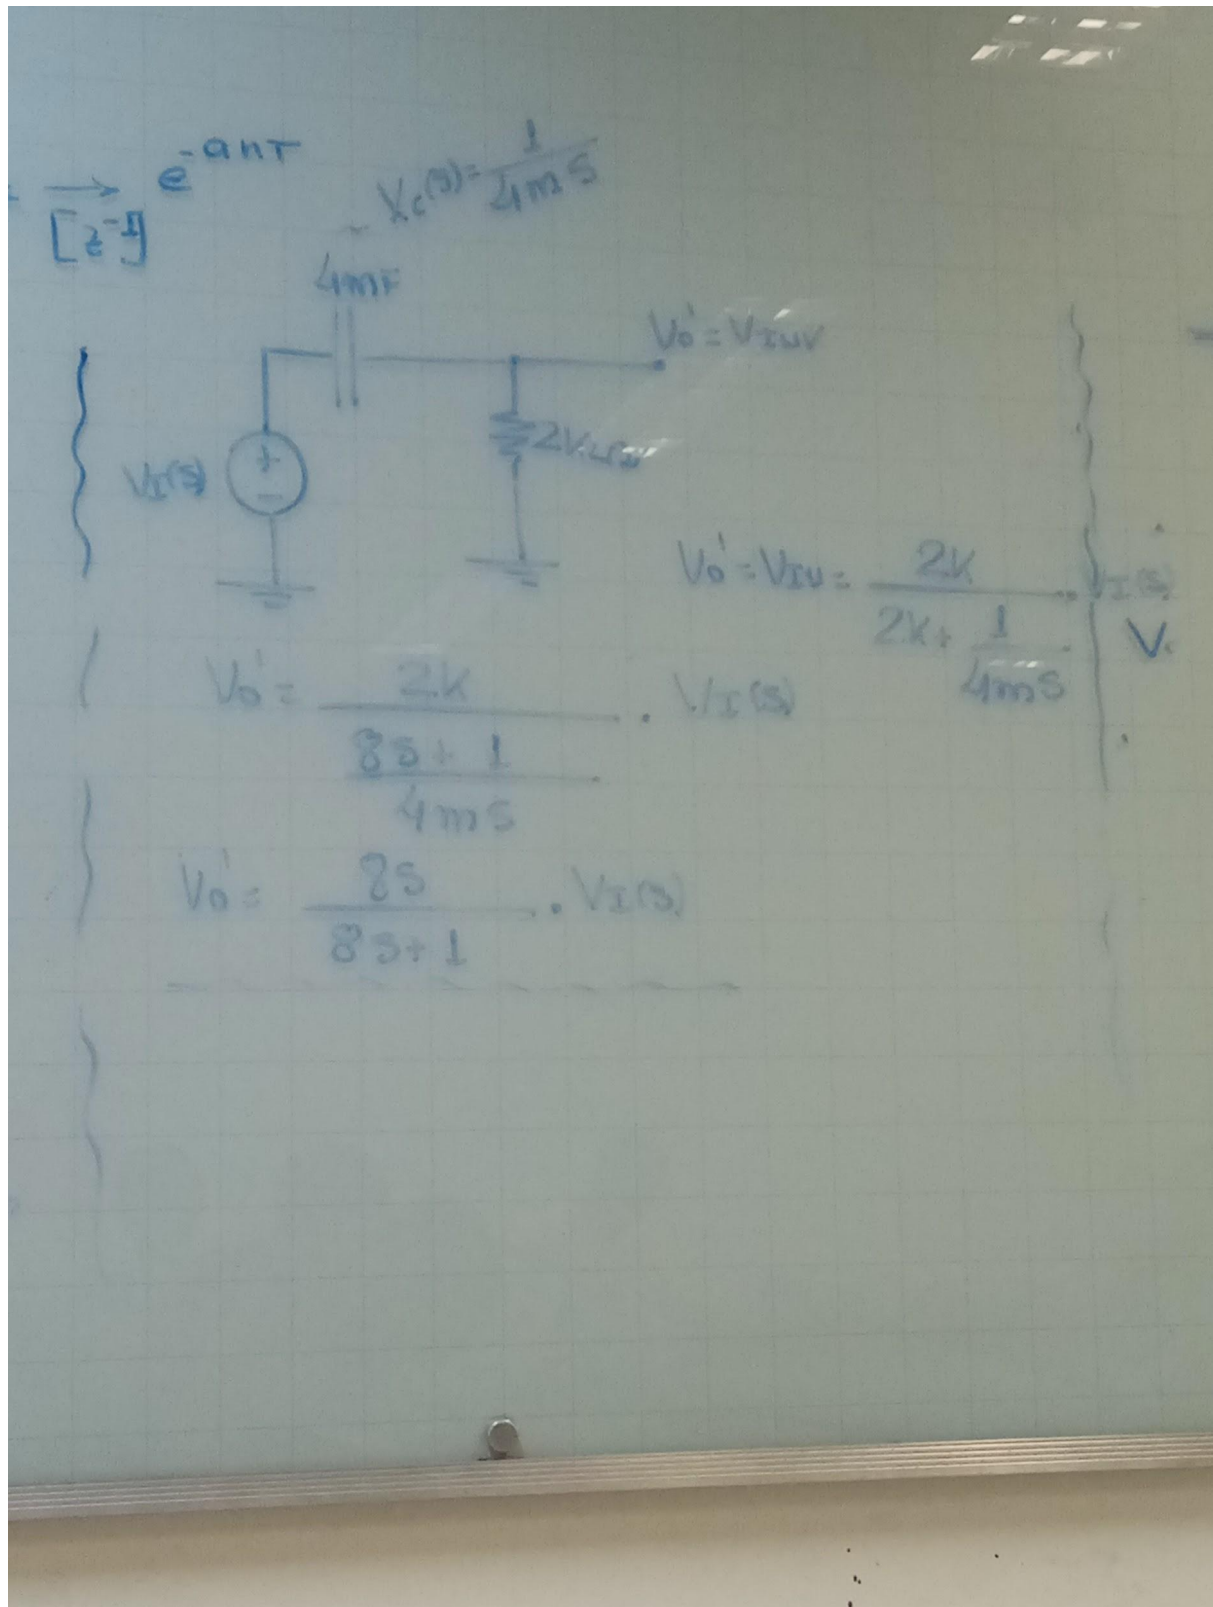 e^-anT
[z^-1]
Xc(s)= 1/4mS
4mF
Vo'=VINV
VI(s)
+
-
Vo'=VIN= 2K/(2K+ 1/4mS) . VI(s)
Vo'= 2K/((8S+1)/4mS) . VI(s)
Vo'= 8S/(8S+1) . VI(s)